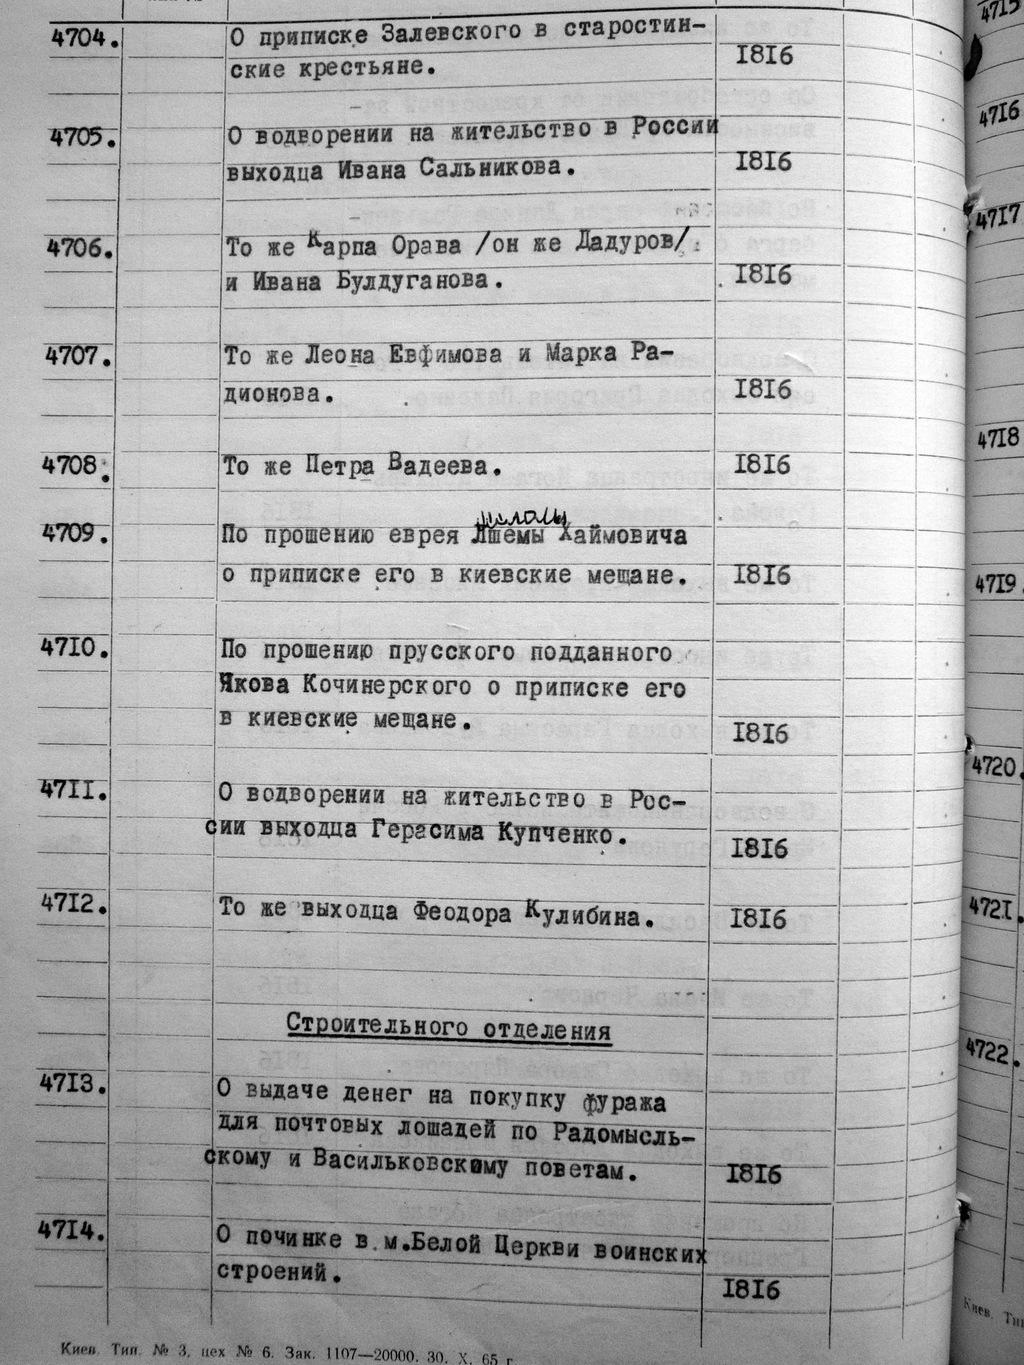 4704. О приписке Залевского в старостин-
ские крестьяне. 1816
4705. О водворении на жительство в России
выходца Ивана Сальникова. 1816
4706. То же Карпа Орава /он же Дадуров/.
и Ивана Булдуганова. 1816
4707. То же Леона Евфимова и Марка Ра-
дионова. 1816
4708. То же Петра Вадеева. 1816
4709. По прошению еврея Лшемы Хаймовича
о приписке его в киевские мещане. 1816
4710. По прошению прусского подданного
Якова Кочинерского о приписке его
в киевские мещане. 1816
4711. О водворении на жительство в Рос-
сии выходца Герасима Купченко. 1816
4712. То же выходца Феодора Кулибина. 1816
Строительного отделения
4713. О выдаче денег на покупку фуража
для почтовых лошадей по Радомысль-
скому и Васильковскому поветам. 1816
4714. О починке в м.Белой Церкви воинских
строений. 1816
Киев. Тип. № 3, цех № 6. Зак. 1107—20000. 30. X. 65 г.
4715
4716
4717
4718
4719.
4720.
4721.
4722.
Киев. Тип